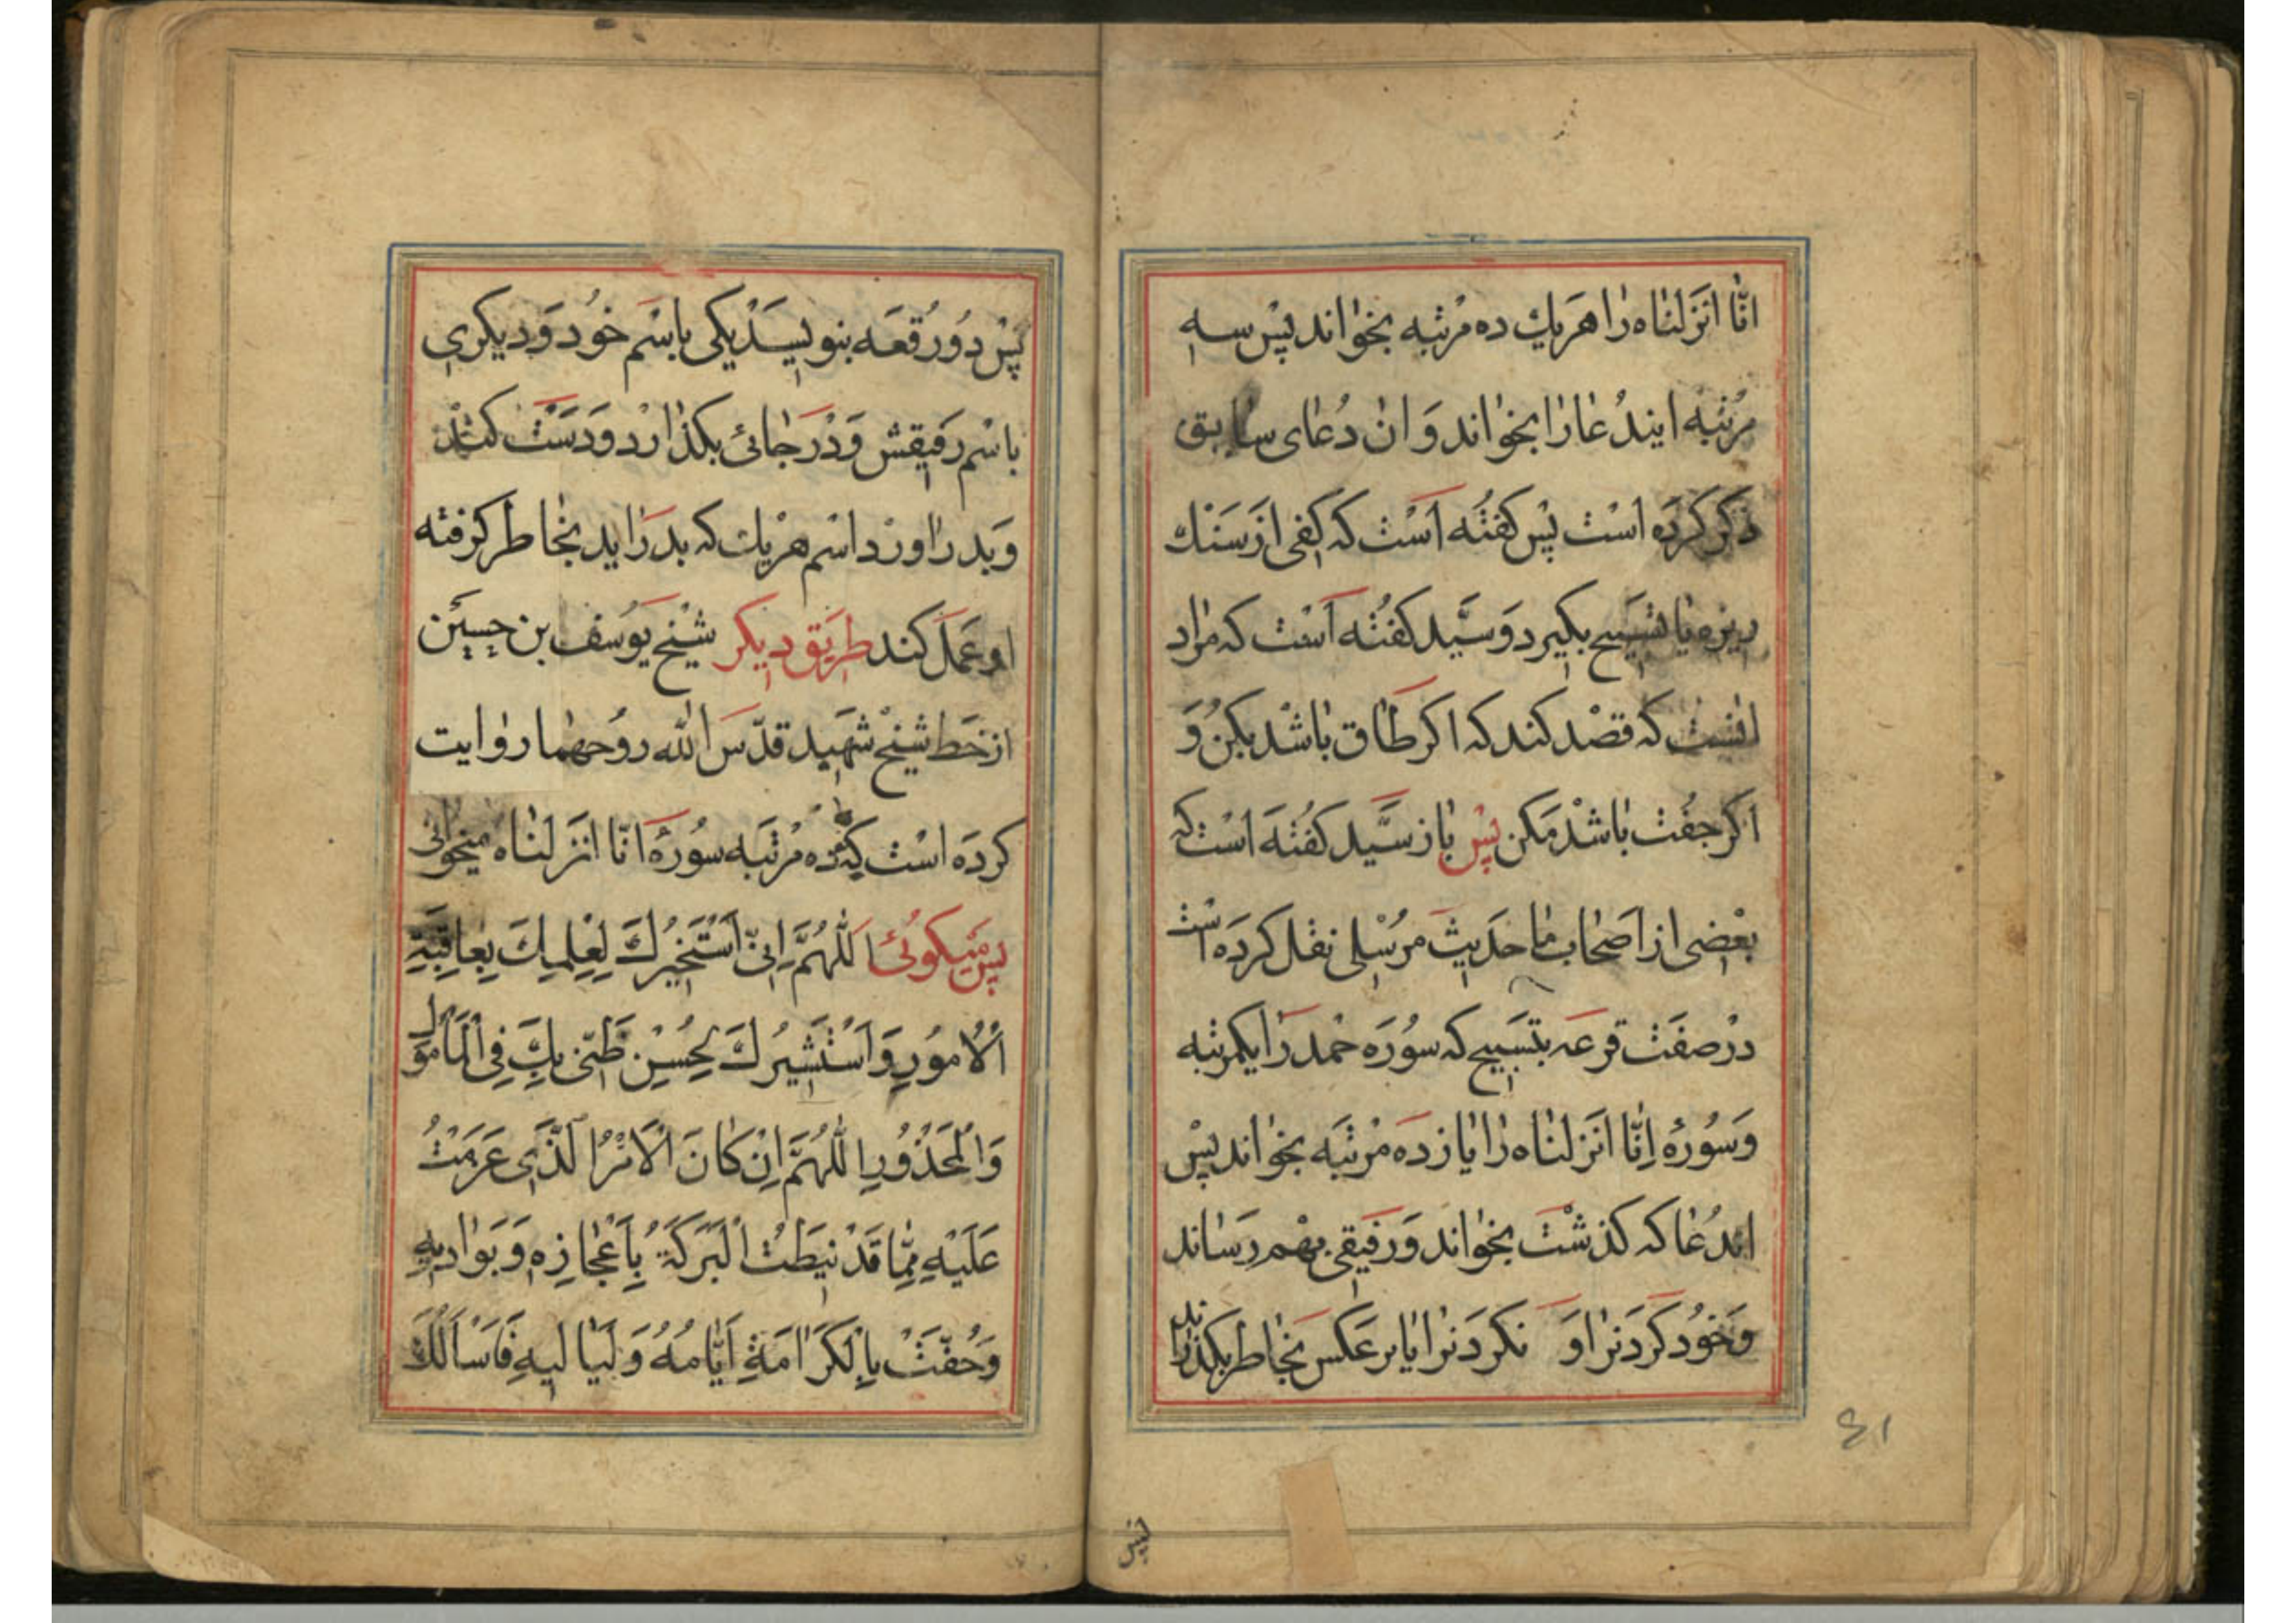 انّا انزلناه را هریك ده مرتبه بخواند پس سه
مرتبه ایندعا را بخواند و ان دعای سابق
ذكر كرده است پس كفته است كه كفی از سنك
ریزه یا تسبیح بكیرد و سیّد كفته است كه مراد
انست كه قصد كند كه اكر طاق باشد بكن و
اكر جفت باشد مكن پس باز سیّد كفته است كه
بعضی از اصحاب ما حدیث مرسلی نقل كرده است
در صفت قرعه بتسبیح كه سوره حمد را یكمرتبه
و سورهٔ اِنّا انزلناه را یازده مرتبه بخواند پس
اندعا كه كذشت بخواند و رفیقی بهم رساند
و خود كردنرا و نكردنرا یا برعكس بخاطر بكذراند
۶۱
پس
پس دو رقعه بنویسد یكی باسم خود و دیكری
باسم رفیقش و در جائی بكذارد و دست كند
و بدر اورد اسم هریك كه بدر اید بخاطر كرفته
او عمل كند طریق دیكر شیخ یوسف بن حسین
از خط شیخ شهید قدّس الله روحهما روایت
كرده است كه ده مرتبه سورهٔ انّا انزلناه میخوانی
پس میكوئی اَللّٰهُمَّ اِنّی اَسْتَخیرُكَ لِعِلْمِكَ بِعاقِبَةِ
اْلاُمُورِ وَ اَسْتَشیرُكَ لِحُسْنِ ظَنّی بِكَ فِی الْمَأمُولِ
وَالْمَحْذُورِ اللّٰهُمَّ اِنْ كانَ الْاَمْرُ الَّذی عَزَمْتُ
عَلَیْهِ مِمّا قَدْ نیطَتْ الْبَرَكَةُ بِاَعْجازِهِ وَ بَوادیهِ
وَ حُفَّتْ بِالْكَرامَةِ اَیّامُهُ وَ لَیالیهِ فَاَسْاَلُكَ